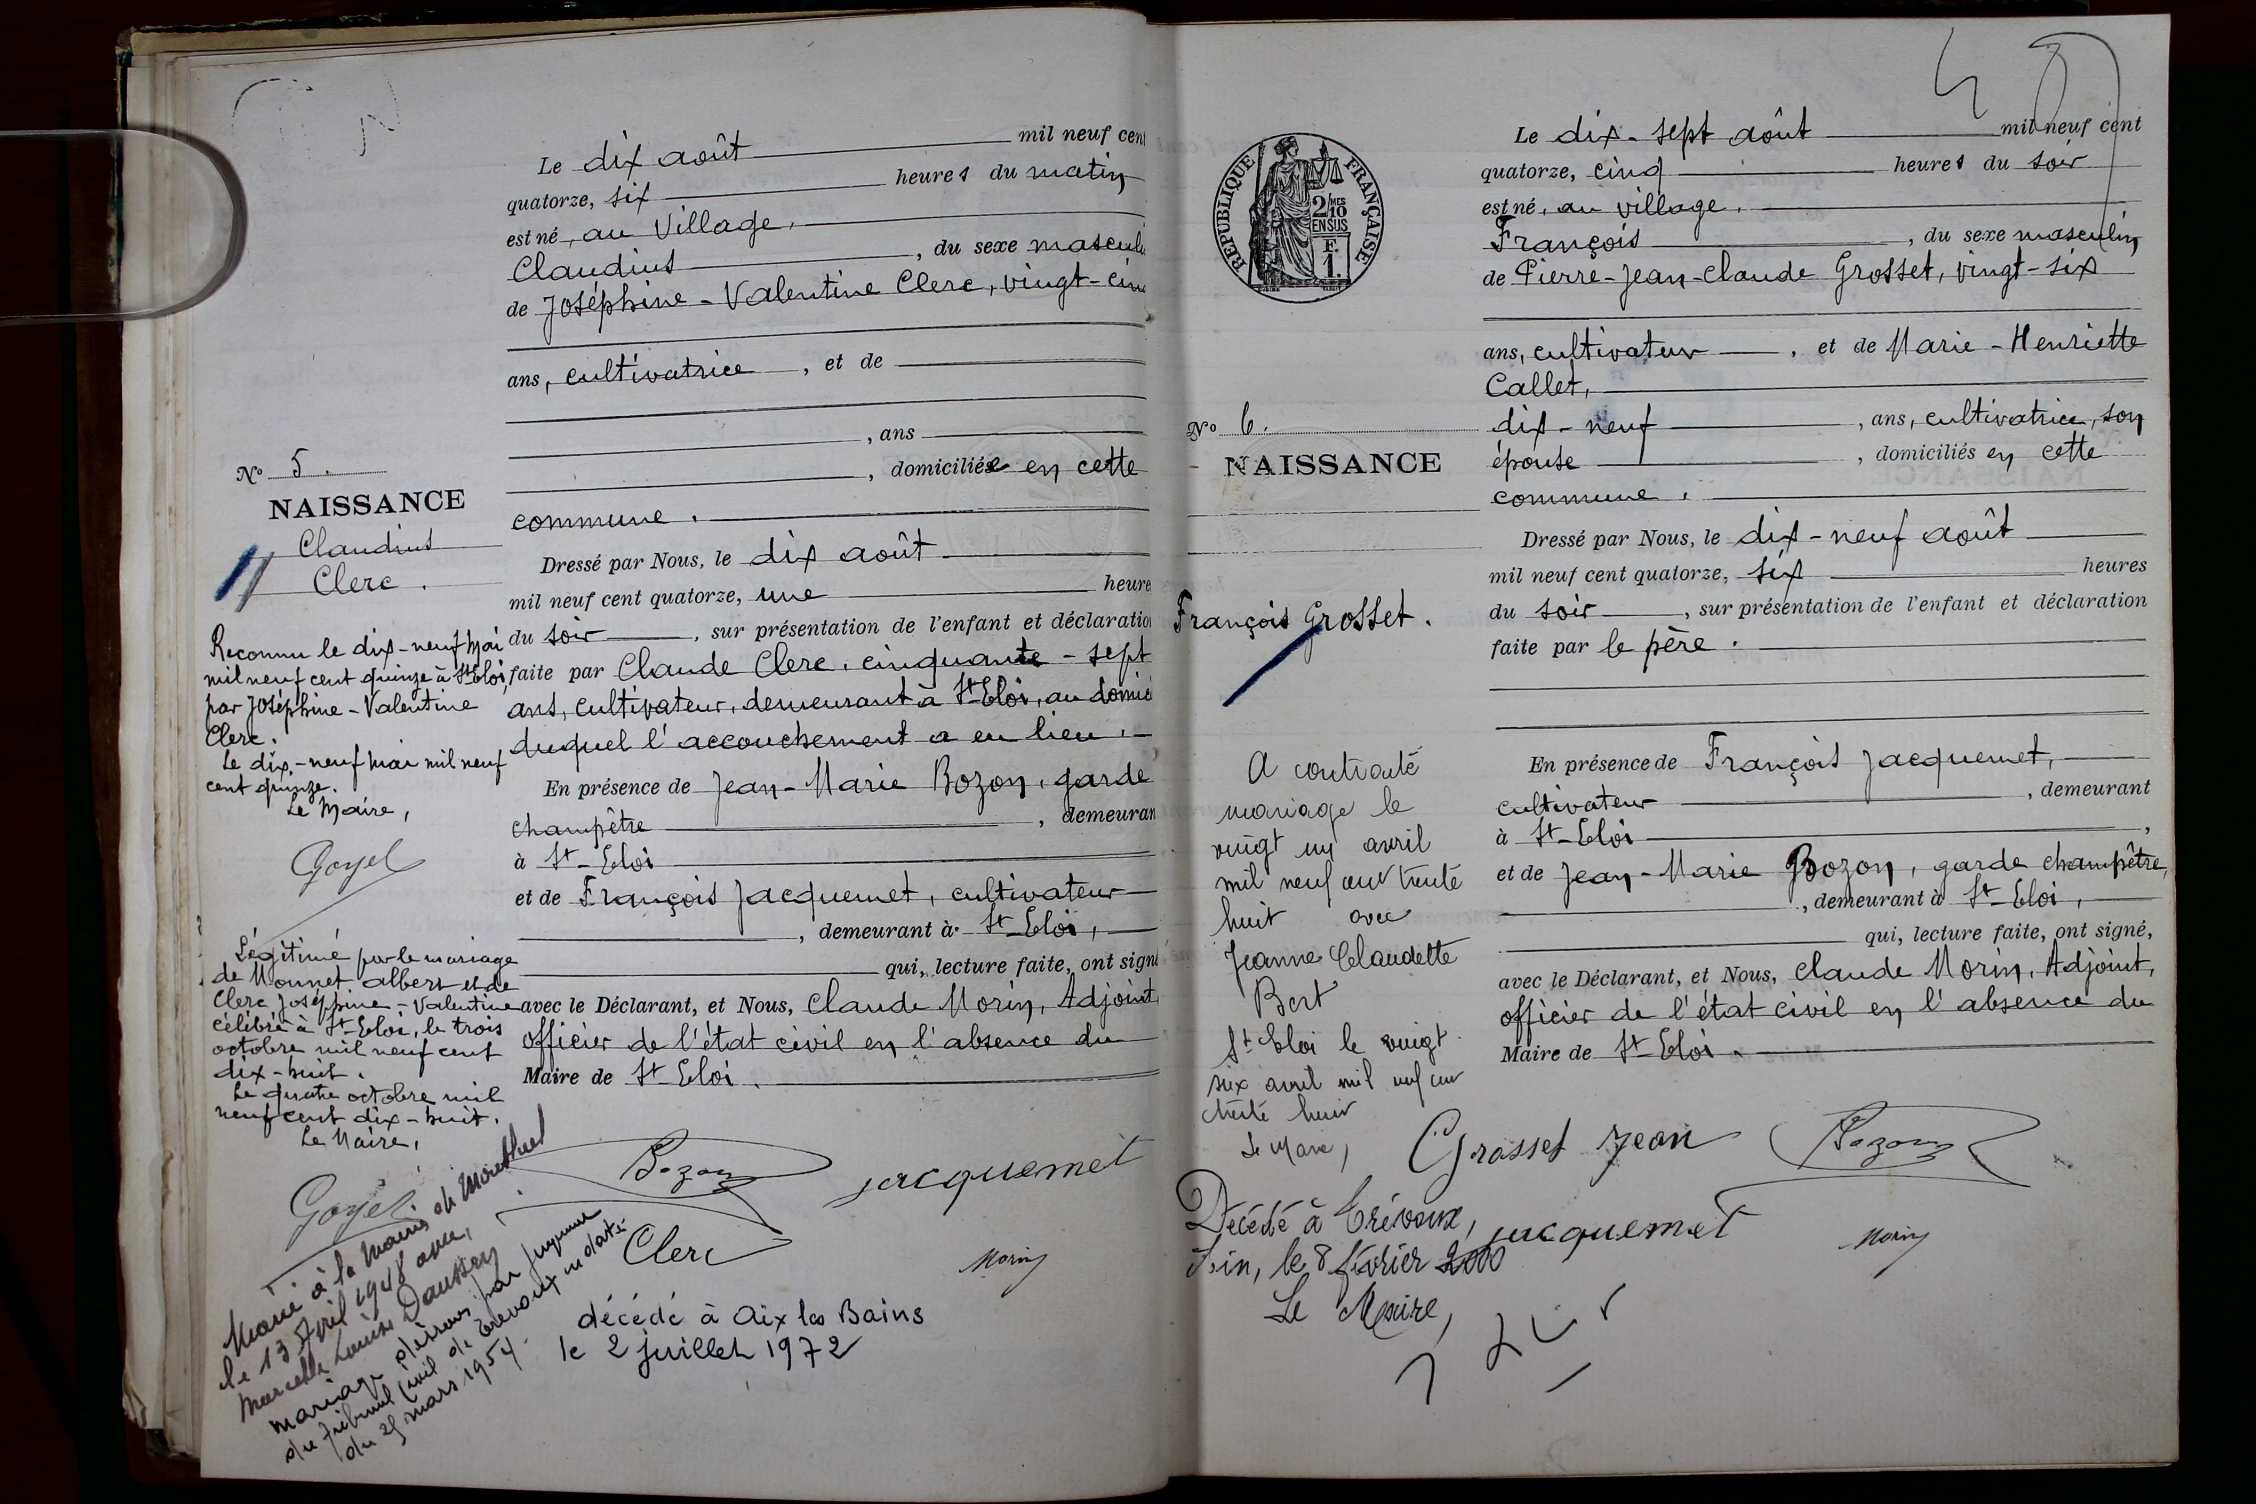 Le dix août mil neuf cent
quatorze, six heures du matin
est né, au Village,
Claudius, du sexe masculi
de Joséphine - Valentine Clerc, vingt-cinq
ans, cultivatrice, et de
, ans
, domiciliée en cette
commune.
Nº 5.
NAISSANCE
Claudius
Clerc.
Dressé par Nous, le dix août
mil neuf cent quatorze, une heure
du soir, sur présentation de l'enfant et déclaration
faite par Claude Clerc, cinquante-sept
ans, cultivateur, demeurant à St-Eloi, au domic
duquel l'accouchement a eu lieu.
En présence de Jean-Marie Bozon, garde
champêtre, demeuran
à St-Eloi
et de François Jacquemet, cultivateur
, demeurant à St-Eloi,
qui, lecture faite, ont signé
avec le Déclarant, et Nous, Claude Morin, Adjoint,
officier de l'état civil en l'absence du
Maire de St Eloi.
Reconnu le dix-neuf Mai
mil neuf cent quinze à St Eloi,
par Joséphine-Valentine
Clerc.
Le dix-neuf Mai mil neuf
cent quinze.
Le Maire,
Goyet
Légitimé par le mariage
de Monnet Albert et de
Clerc Joséphine-Valentine
célébré à St-Eloi, le trois
octobre mil neuf cent
dix-huit.
Le quatre octobre mil
neuf cent dix-huit.
Le Maire,
Goyet
Marié à la Mairie de Monthuel
le 13 Avril 1948 avec
Marcelle Louise
mariage dissous par jugement
du Tribunal Civil de Trévoux en date
du 25 mars 1954.
Bozon
Jacquemet
Clerc
Morin
décédé à Aix les Bains
le 2 juillet 1972
RÉPUBLIQUE FRANÇAISE
2/10
MES
EN SUS
F.
1.
Le dix-sept août mil neuf cent
quatorze, cinq heures du soir
est né, au village,
François, du sexe masculin
de Pierre-Jean-Claude Grosset, vingt-six
ans, cultivateur, et de Marie-Henriette
Callet,
dix-neuf, ans, cultivatrice, son
épouse, domiciliés en cette
commune.
Nº 6.
NAISSANCE
François Grosset.
Dressé par Nous, le dix-neuf août
mil neuf cent quatorze, six heures
du soir, sur présentation de l'enfant et déclaration
faite par le père.
En présence de François Jacquemet,
cultivateur, demeurant
à St-Eloi,
et de Jean-Marie Bozon, garde champêtre,
, demeurant à St-Eloi,
qui, lecture faite, ont signé,
avec le Déclarant, et Nous, Claude Morin, Adjoint,
officier de l'état civil en l'absence du
Maire de St Eloi.
A contracté
mariage le
vingt un avril
mil neuf cent trente
huit avec
Jeanne Claudette
Bert
St Eloi le vingt
six avril mil neuf cent
trente huit
Le Maire,
Grosset Jean
Bozon
Jacquemet
Morin
Décédé à Trévoux,
Ain, le 8 février 2000
Le Maire,